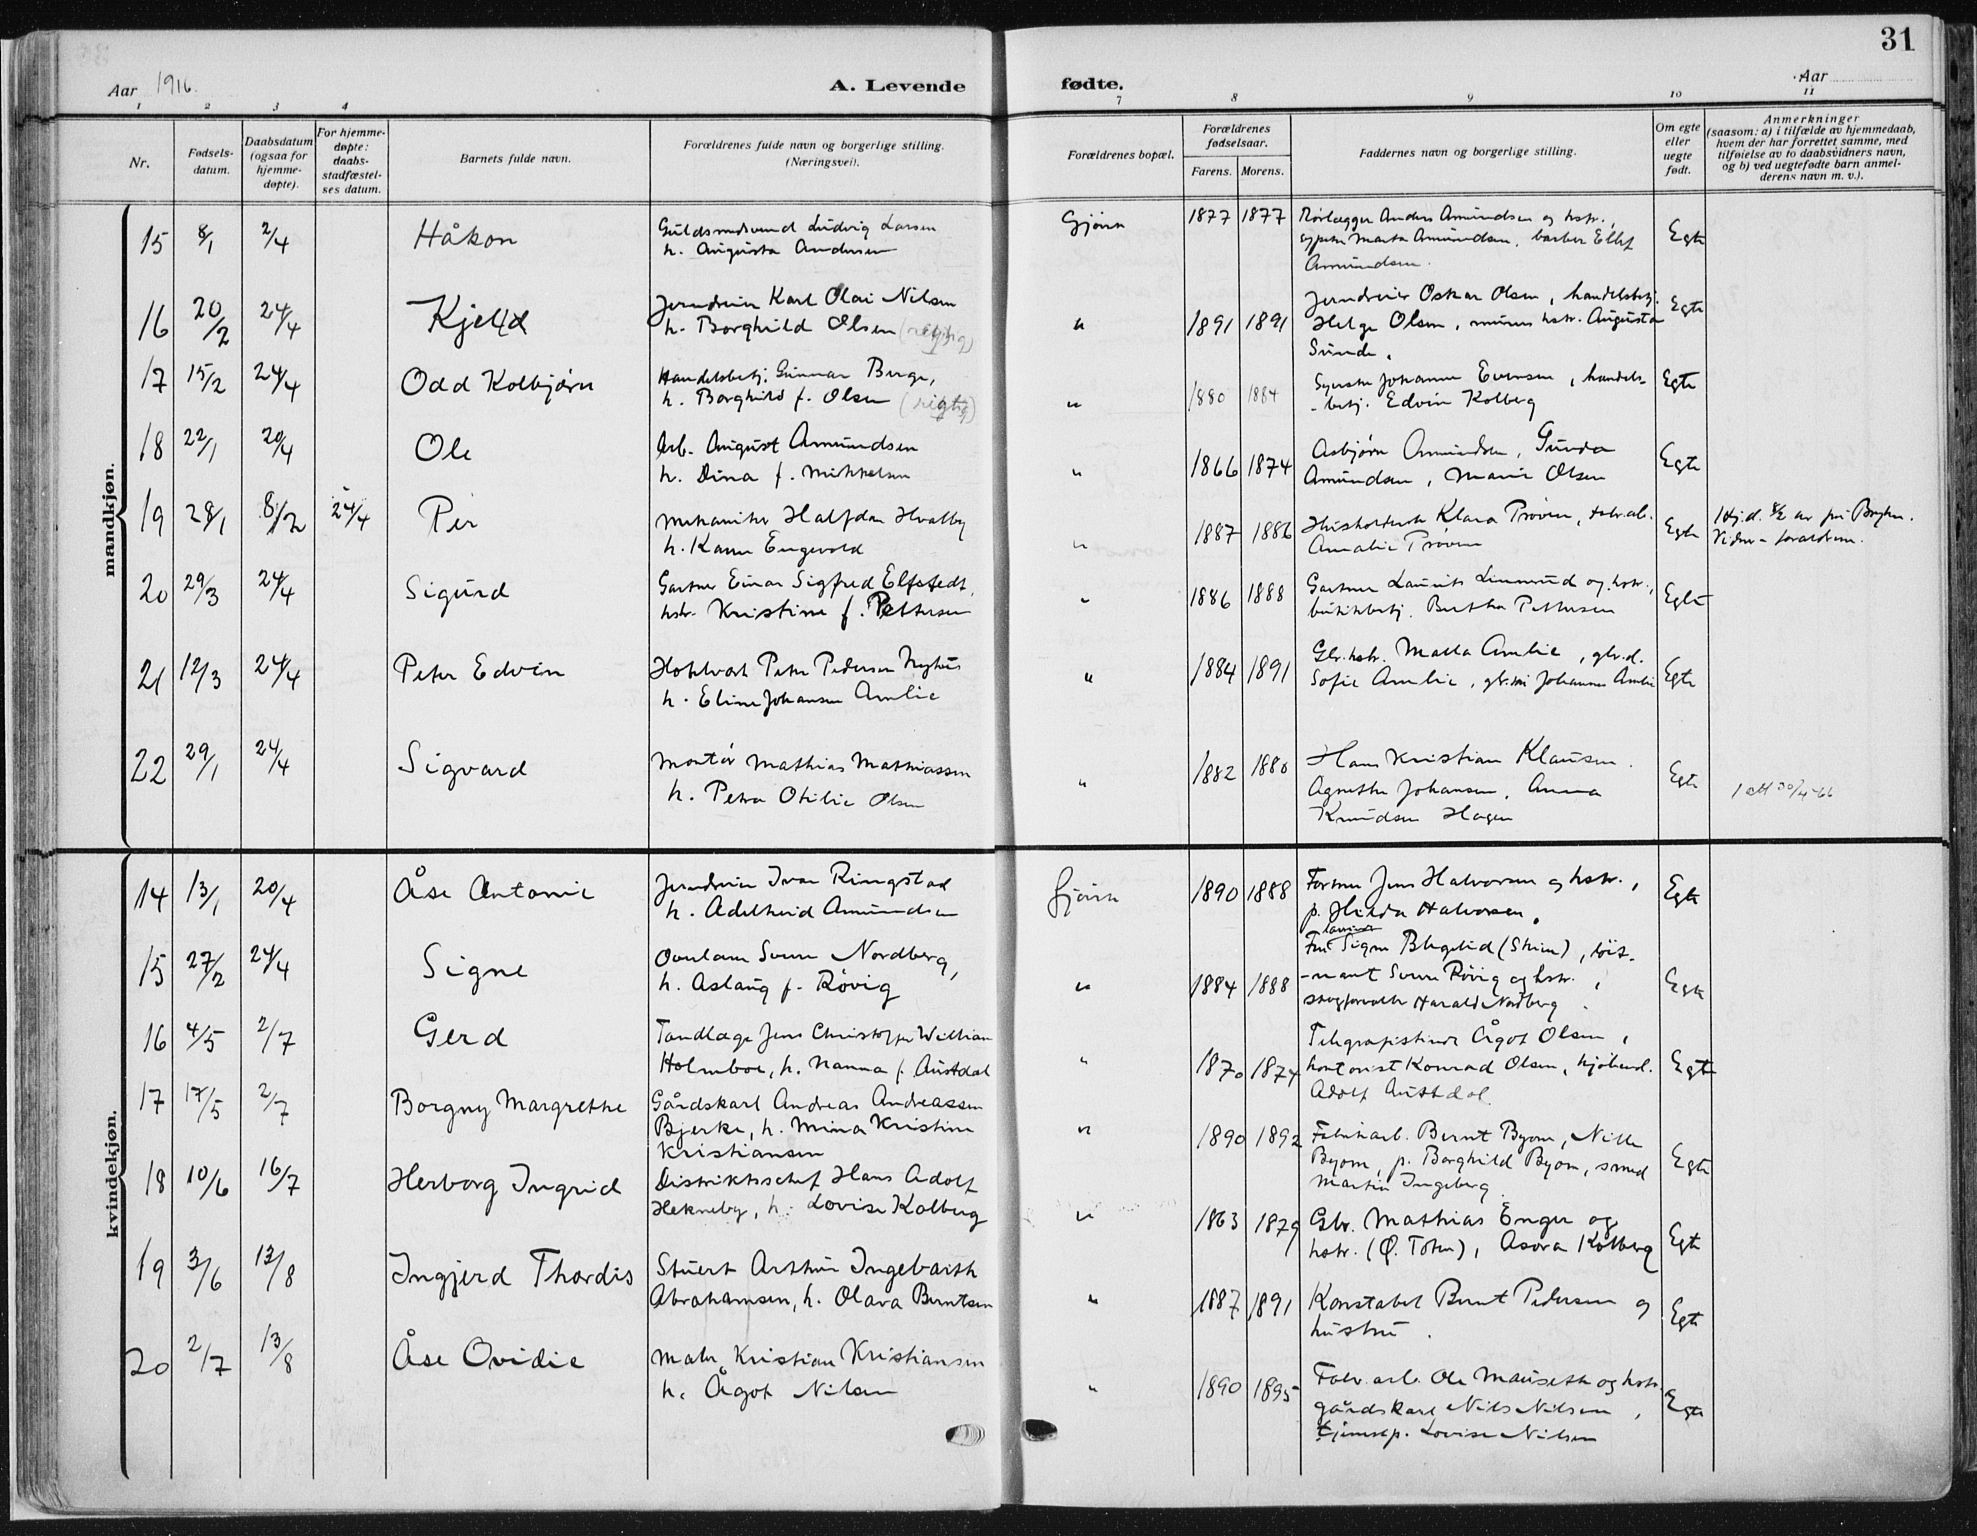 31
Aar 1916. A. Levende fødte. Aar
1 2 3 4 7 8 9 10 11
Nr. Fødsels-datum. Daabsdatum (ogsaa for hjemme-døpte). For hjemme-døpte: daabs-stadfæstel-ses datum. Barnets fulde navn. Forældrenes fulde navn og borgerlige stilling. (Næringsvei). Forældrenes bopæl. Forældrenes fødselsaar. Farens. Morens. Faddernes navn og borgerlige stilling. Om egte eller uegte født. Anmerkninger (saasom: a) i tilfælde av hjemmedaab, hvem der har forrettet samme, med tilføielse av to daabsvidners navn, og b) ved uegtefødte barn anmel-derens navn m. v.).
mandkjøn.
15 8/1 2/4 Håkon Guldsmedsvend Ludvig Larsen Gjøvik 1877 1877 Rørlægger Anders Amundsen og hstr.,
h. Augusta Andersen syerske Marta Amundsen, barber Ellef Egte
Amundsen.
16 20/2 24/4 Kjeld Jerndreier Karl Olai Nilsen Jerndreier Oskar Olsen, handelsbetj. Egte
h. Borghild Olsen (rigtig) " 1891 1891 Helge Olsen, murers hstr. Augusta
Sunde.
17 15/2 24/4 Odd Kolbjørn Handelsbetj. Gunnar Berge, 1880 1884 Syerske Johanne Evensen, handels- Egte
h. Borghild f. Olsen (rigtig) " -betj. Edvin Kolberg
18 22/1 20/4 Ole Arb. August Amundsen Asbjørn Amundsen, Gunda
h. Dina f. Mikkelsen " 1866 1874 Amundsen, Marie Olsen Egte
19 28/1 8/2 24/4 Per Mekaniker Halfdan Hvalby 1887 1886 Husholderske Klara Prøven, fabr.arb. Egte Hj.d. 8/2 av
h. Karen Engevold " Amalie Prøven Vidner - forældrene.
20 29/3 24/4 Sigurd Gartner Einar Sigfred Elfstedt, " 1886 1888 Gartner Laurits Linnerud og hstr., Egte
hstr. Kristine f. Pettersen butikbetj. Bertha Pettersen
21 12/3 24/4 Peter Edvin Hotelvært Peter Pedersen Nyhus " 1884 1891 Gbr.hstr. Malla Amlie, gbr.d.
h. Eline Johansen Amlie Sofie Amlie, Johannes Amlie Egte
22 29/1 24/4 Sigvard Montør Mathias Mathiassen 1882 1880 Hans Kristian Klausen.
h. Petra Otilie Olsen " Agnethe Johansen, Anna Egte 1 att 30/4-66
Knudsen Hagen
kvindekjøn.
14 13/1 20/4 Åse Antonie Jerndreier Ivar Ringstad Gjøvik 1890 1888 Former Jens Halvorsen og hstr., Egte
h. Adelheid Amundsen p. Hilda Halvorsen.
15 27/2 24/4 Signe Ovnlam Sverre Nordberg, Fru Signe Blegelid (Skien), løit-
h. Aslaug f. Røvig " 1884 1888 -nant Sverre Røvig og hstr., Egte
skogforvalter Harald Nordberg.
16 4/5 2/7 Gerd Tandlæge Jens Christoffer William Telegrafistinde Ågot Olsen,
Holmboe, h. Nanna f. Austdal " 1870 1874 kontorist Konrad Olsen, kjøbmd. Egte
Adolf Austdal.
17 17/5 2/7 Borgny Margrethe Gårdskarl Andreas Andreassen
Bjerke, h. Mina Kristine " 1890 1892 Fabrikarb. Bernt Byom, Nille
Kristiansen Byom, p. Borghild Byom, smed Egte
Martin Ingeberg.
18 10/6 16/7 Herborg Ingrid Distriktschef Hans Adolf
Hekneby, h. Lovise Kolberg " 1863 1879 Gbr. Mathias Enger og
hstr. (Ø. Toten), Asora Kolberg Egte
19 3/6 13/8 Ingjerd Thordis Stuert Arthur Ingebarth
Abrahamsen, h. Olava Berntsen " 1887 1891 Konstabel Bernt Pedersen og Egte
hustru.
20 2/7 13/8 Åse Ovidie Maler Kristian Kristiansen
h. Ågot Nilsen " 1890 1895 Fabr.arb. Ole Mauseth og hstr.
gårdskarl Nils Nilsen, Egte
tjenestep. Lovise Nilsen